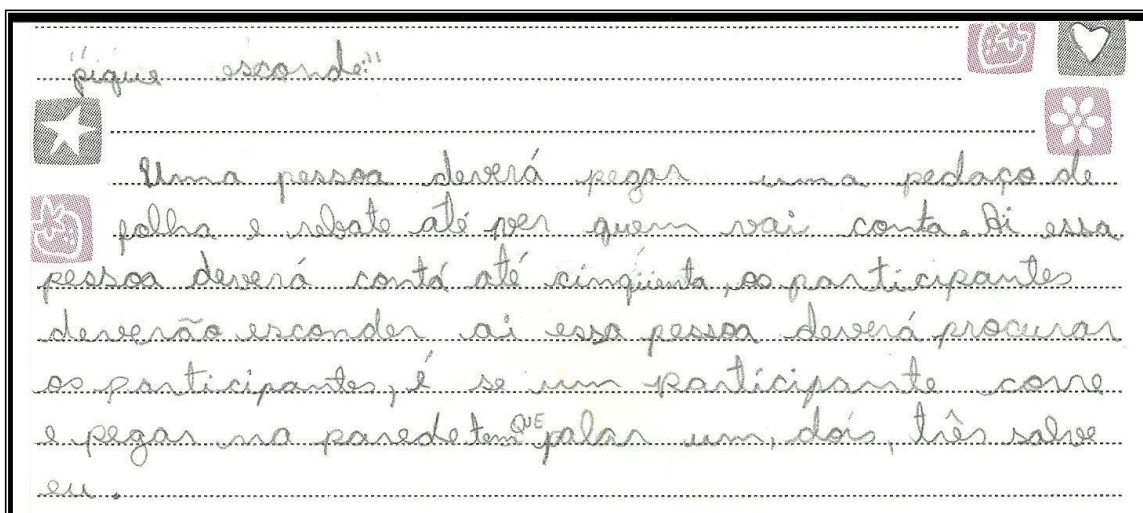 "pique esconde:"
Uma pessoa deverá pegar uma pedaço de
folha e rebate até ver quem vai conta. Ai essa
pessoa deverá contá até cinqüenta, os participantes
deverão esconder ai essa pessoa deverá procurar
os participantes, é se um participante corre
e pegar na parede tem QUE falar um, dois, três salve
eu.